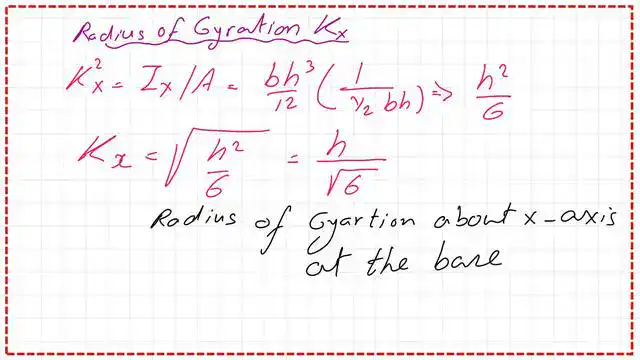 Radius of Gyration Kx
Kx² = Ix/A = bh³/12 (1/½ bh) => h²/6
Kx = √(h²/6) = h/√6
Radius of Gyartion about x-axis
at the base